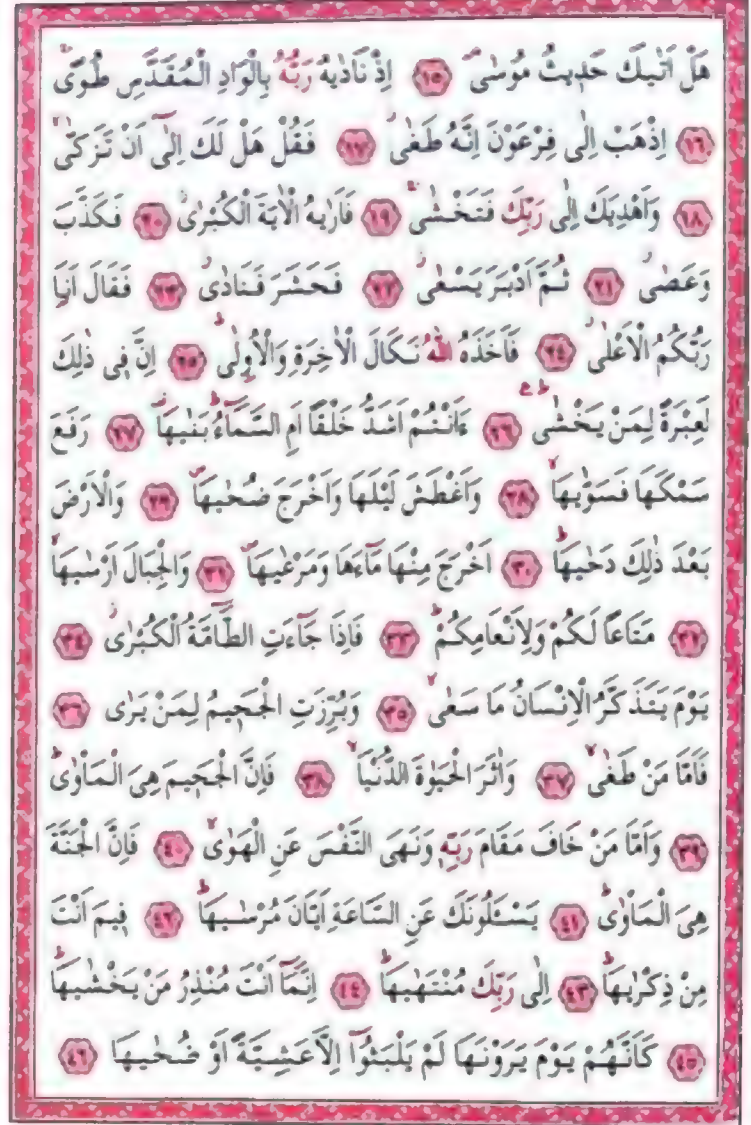 هَلْ اَتٰيكَ حَد۪يثُ مُوسٰىۢ ﴿١٥﴾ اِذْ نَادٰيهُ رَبُّهُ بِالْوَادِ الْمُقَدَّسِ طُوًىۚ
﴿١٦﴾ اِذْهَبْ اِلٰى فِرْعَوْنَ اِنَّهُ طَغٰىۘ ﴿١٧﴾ فَقُلْ هَلْ لَكَ اِلٰٓى اَنْ تَزَكّٰىۙ
﴿١٨﴾ وَاَهْدِيَكَ اِلٰى رَبِّكَ فَتَخْشٰىۚ ﴿١٩﴾ فَاَرٰيهُ الْاٰيَةَ الْكُبْرٰىۘ ﴿٢٠﴾ فَكَذَّبَ
وَعَصٰىۘ ﴿٢١﴾ ثُمَّ اَدْبَرَ يَسْعٰىۘ ﴿٢٢﴾ فَحَشَرَ فَنَادٰىۘ ﴿٢٣﴾ فَقَالَ اَنَا۬
رَبُّكُمُ الْاَعْلٰىۘ ﴿٢٤﴾ فَاَخَذَهُ اللّٰهُ نَكَالَ الْاٰخِرَةِ وَالْاُو۫لٰىۜ ﴿٢٥﴾ اِنَّ ف۪ي ذٰلِكَ
لَعِبْرَةً لِمَنْ يَخْشٰىۜ ﴿٢٦﴾ ءَاَنْتُمْ اَشَدُّ خَلْقًا اَمِ السَّمَٓاءُۜ بَنٰيهَا۠ ﴿٢٧﴾ رَفَعَ
سَمْكَهَا فَسَوّٰيهَاۙ ﴿٢٨﴾ وَاَغْطَشَ لَيْلَهَا وَاَخْرَجَ ضُحٰيهَاۖ ﴿٢٩﴾ وَالْاَرْضَ
بَعْدَ ذٰلِكَ دَحٰيهَاۜ ﴿٣٠﴾ اَخْرَجَ مِنْهَا مَٓاءَهَا وَمَرْعٰيهَاۖ ﴿٣١﴾ وَالْجِبَالَ اَرْسٰيهَاۙ
﴿٣٢﴾ مَتَاعًا لَكُمْ وَلِاَنْعَامِكُمْۜ ﴿٣٣﴾ فَاِذَا جَٓاءَتِ الطَّٓامَّةُ الْكُبْرٰىۘ ﴿٣٤﴾
يَوْمَ يَتَذَكَّرُ الْاِنْسَانُ مَا سَعٰىۙ ﴿٣٥﴾ وَبُرِّزَتِ الْجَح۪يمُ لِمَنْ يَرٰى ﴿٣٦﴾
فَاَمَّا مَنْ طَغٰىۙ ﴿٣٧﴾ وَاٰثَرَ الْحَيٰوةَ الدُّنْيَاۙ ﴿٣٨﴾ فَاِنَّ الْجَح۪يمَ هِيَ الْمَأْوٰىۜ
﴿٣٩﴾ وَاَمَّا مَنْ خَافَ مَقَامَ رَبِّه۪ وَنَهَى النَّفْسَ عَنِ الْهَوٰىۙ ﴿٤٠﴾ فَاِنَّ الْجَنَّةَ
هِيَ الْمَأْوٰىۜ ﴿٤١﴾ يَسْـَٔلُونَكَ عَنِ السَّاعَةِ اَيَّانَ مُرْسٰيهَاۜ ﴿٤٢﴾ ف۪يمَ اَنْتَ
مِنْ ذِكْرٰيهَاۜ ﴿٤٣﴾ اِلٰى رَبِّكَ مُنْتَهٰيهَاۜ ﴿٤٤﴾ اِنَّمَٓا اَنْتَ مُنْذِرُ مَنْ يَخْشٰيهَاۜ
﴿٤٥﴾ كَاَنَّهُمْ يَوْمَ يَرَوْنَهَا لَمْ يَلْبَثُٓوا اِلَّا عَشِيَّةً اَوْ ضُحٰيهَا ﴿٤٦﴾